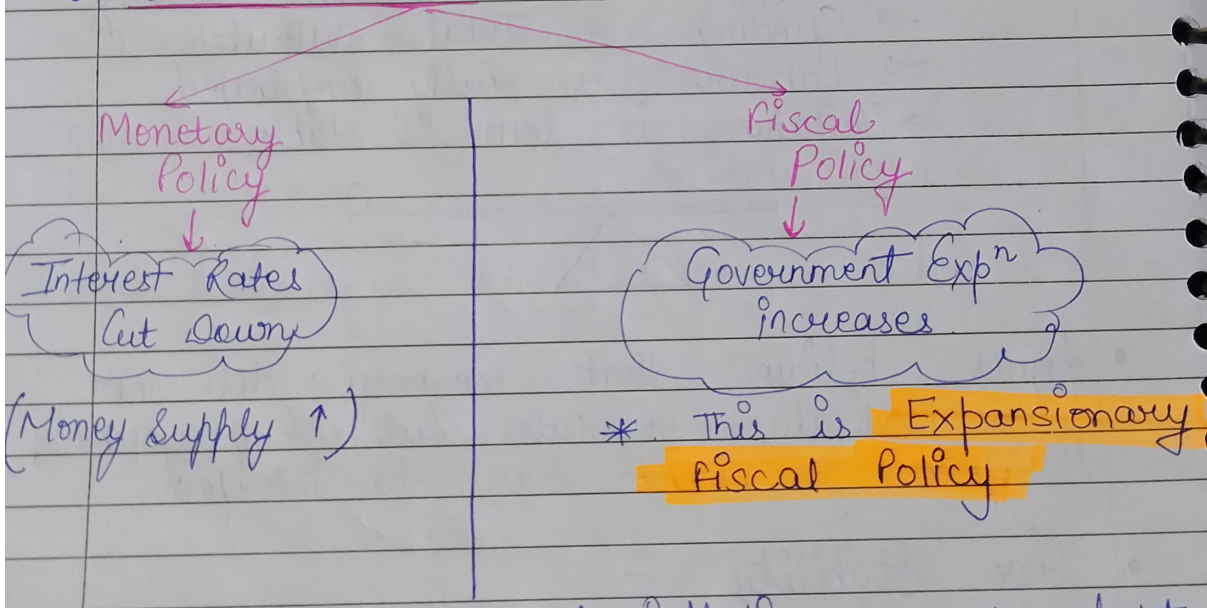 Monetary
Policy
↓
Interest Rates
Cut Down
(Money Supply ↑)
Fiscal
Policy
↓
Government Expⁿ
increases.
* This is Expansionary
Fiscal Policy